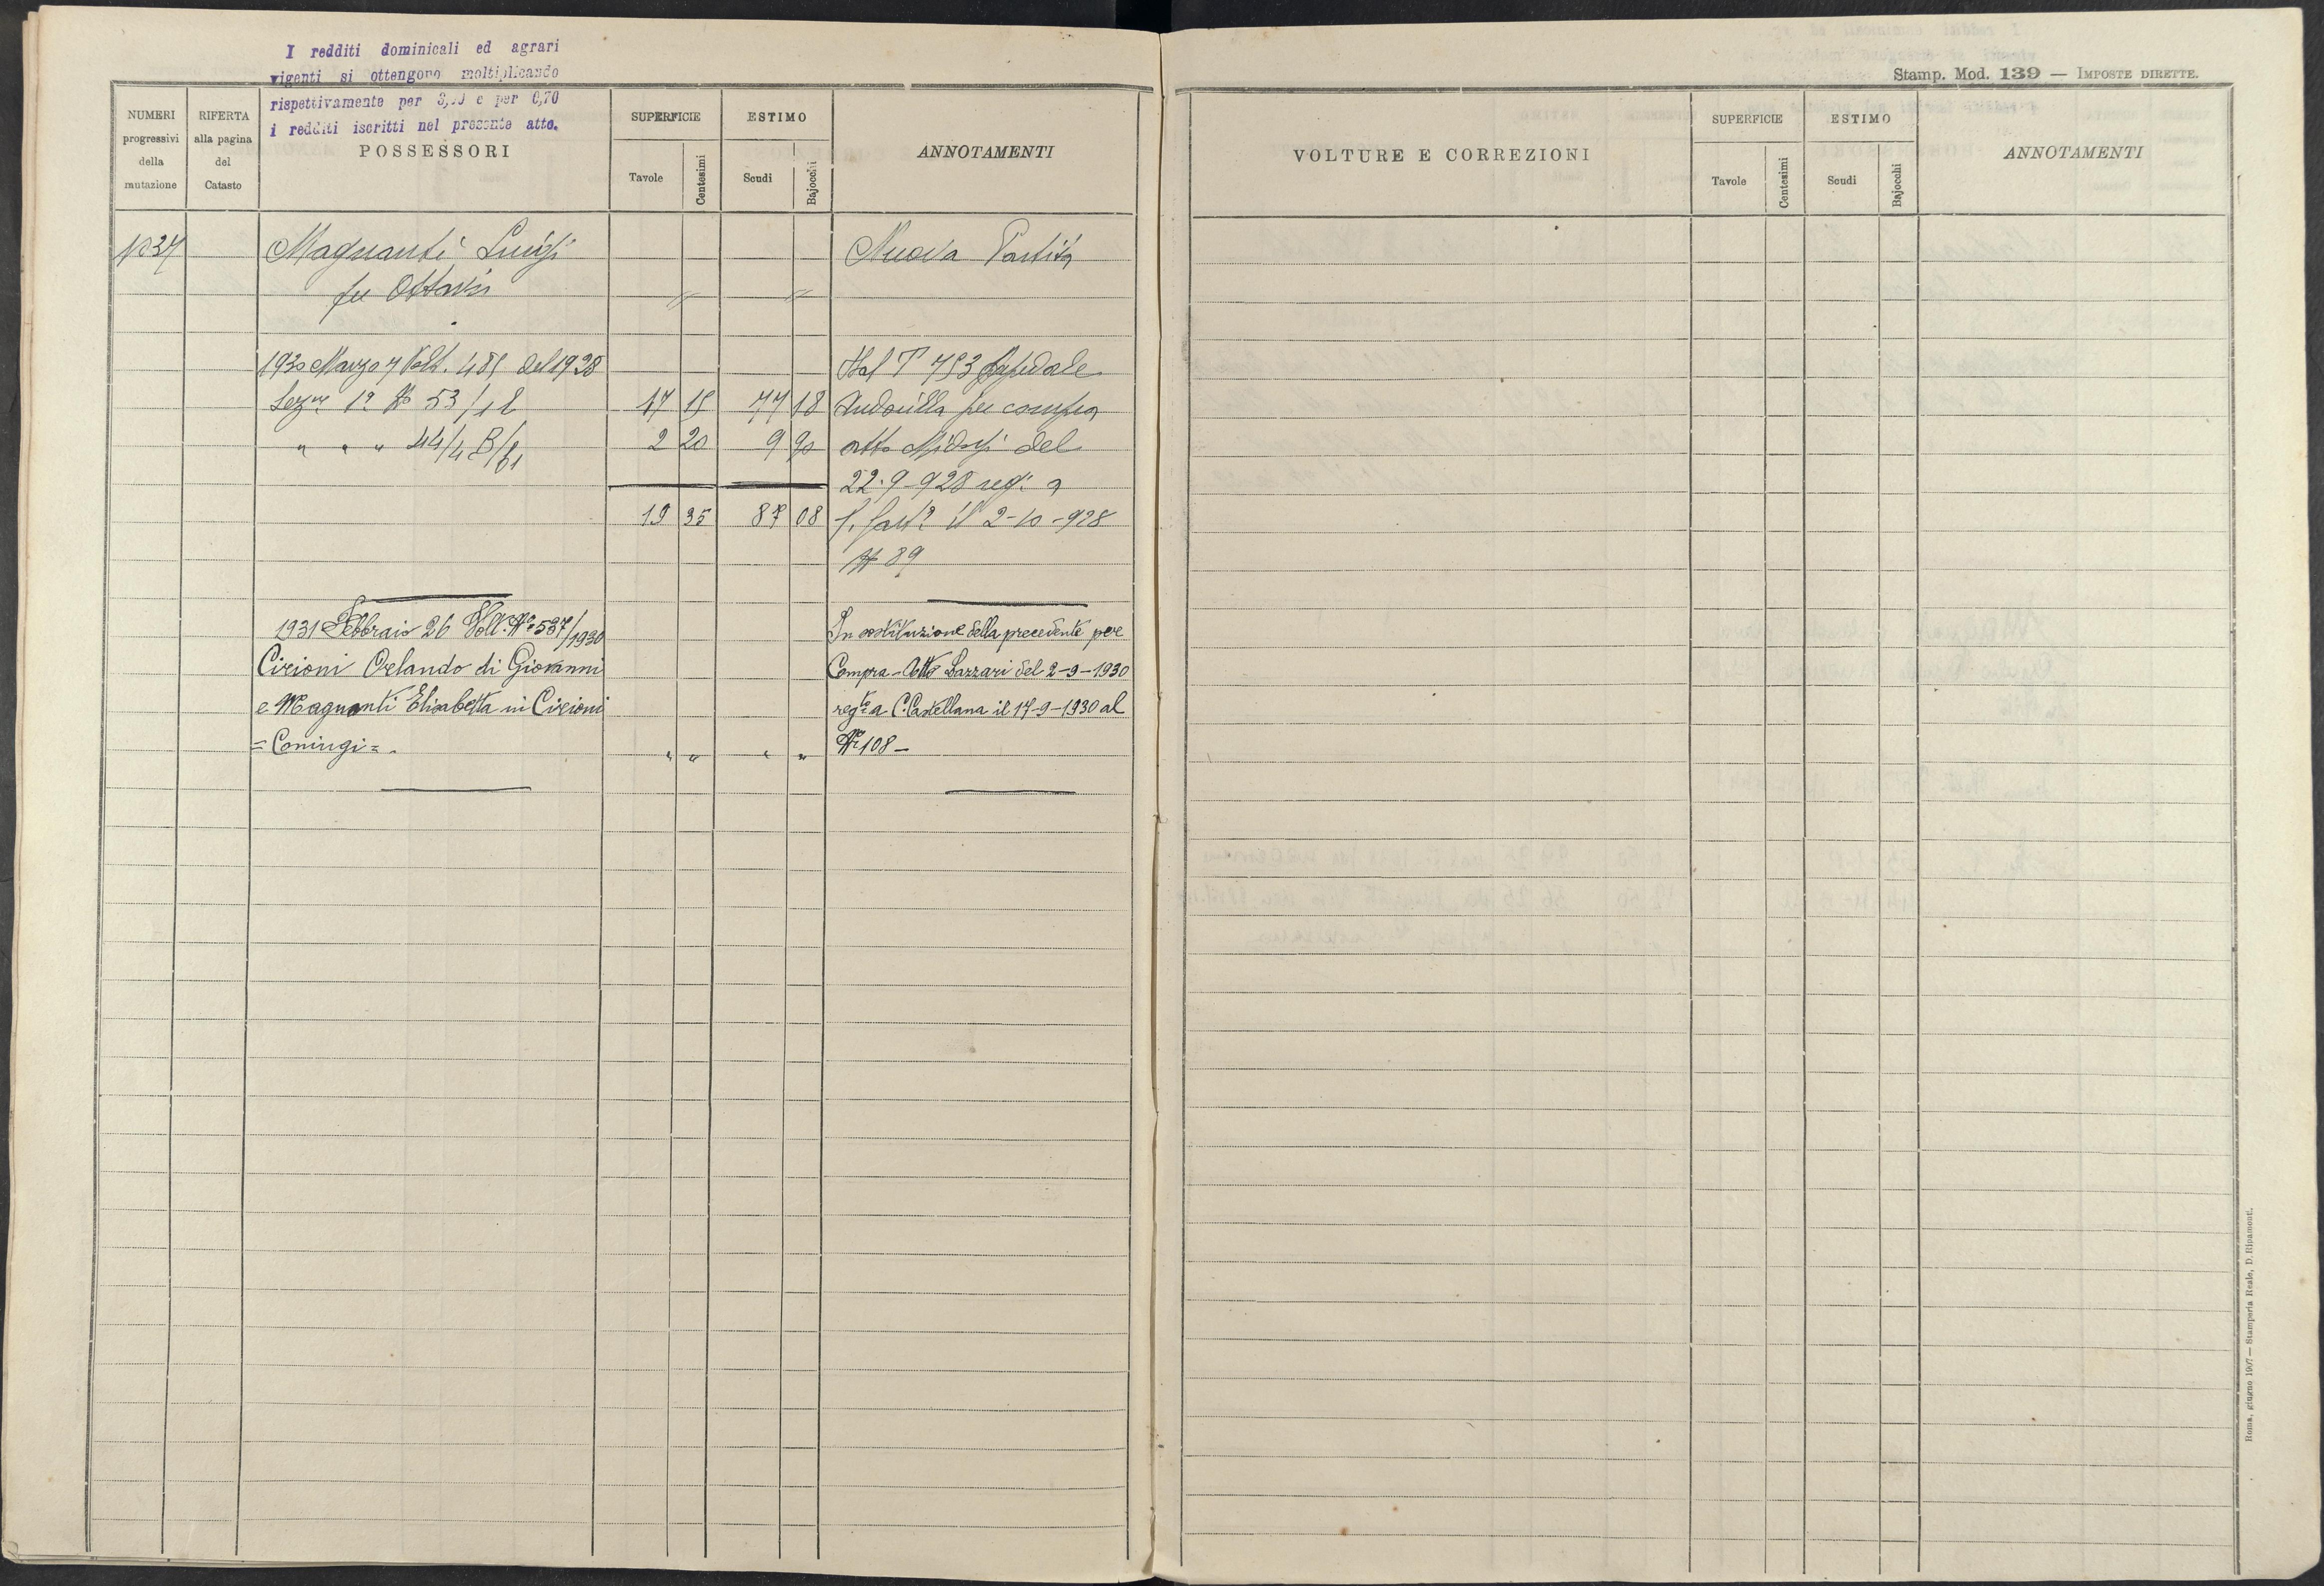 I redditi dominicali ed agrari
vigenti si ottengono moltiplicando
rispettivamente per e per 0,70
i redditi iscritti nel presente atto.
NUMERI progressivi della mutazione
RIFERTA alla pagina del Catasto
POSSESSORI
SUPERFICIE
Tavole
Centesimi
ESTIMO
Scudi
Bajocchi
ANNOTAMENTI
1037 Magnanti Luigi Nuova Partita
fu Ottavio " "
1930 Marzo 7 Volt. 485 del 1928 Dal T 753 Ospedale
Sez.ne 1a No 53/ 17 15 77 18 per compra
" " " 44/4 2 20 9 90 atto del
22-9-928 reg: a
19 35 87 08 il 2-10-928
N 89
1931 Febbraio 26 Volt. No 537/1930 In sostituzione della precedente per
Cirioni Orlando di Giovanni Compra - Atto Lazzari del 2-9-1930
e Magnanti Elisabetta in Cirioni regto a C. Castellana il 17-9-1930 al
= Coniugi = . " " " " No 108 -
Stamp. Mod. 139 — IMPOSTE DIRETTE.
VOLTURE E CORREZIONI
SUPERFICIE
Tavole
Centesimi
ESTIMO
Scudi
Bajocchi
ANNOTAMENTI
Roma, giugno 1907 — Stamperia Reale, D. Ripamonti.